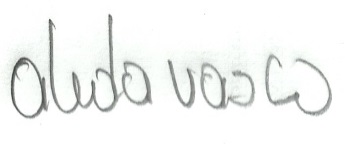 alda vasco